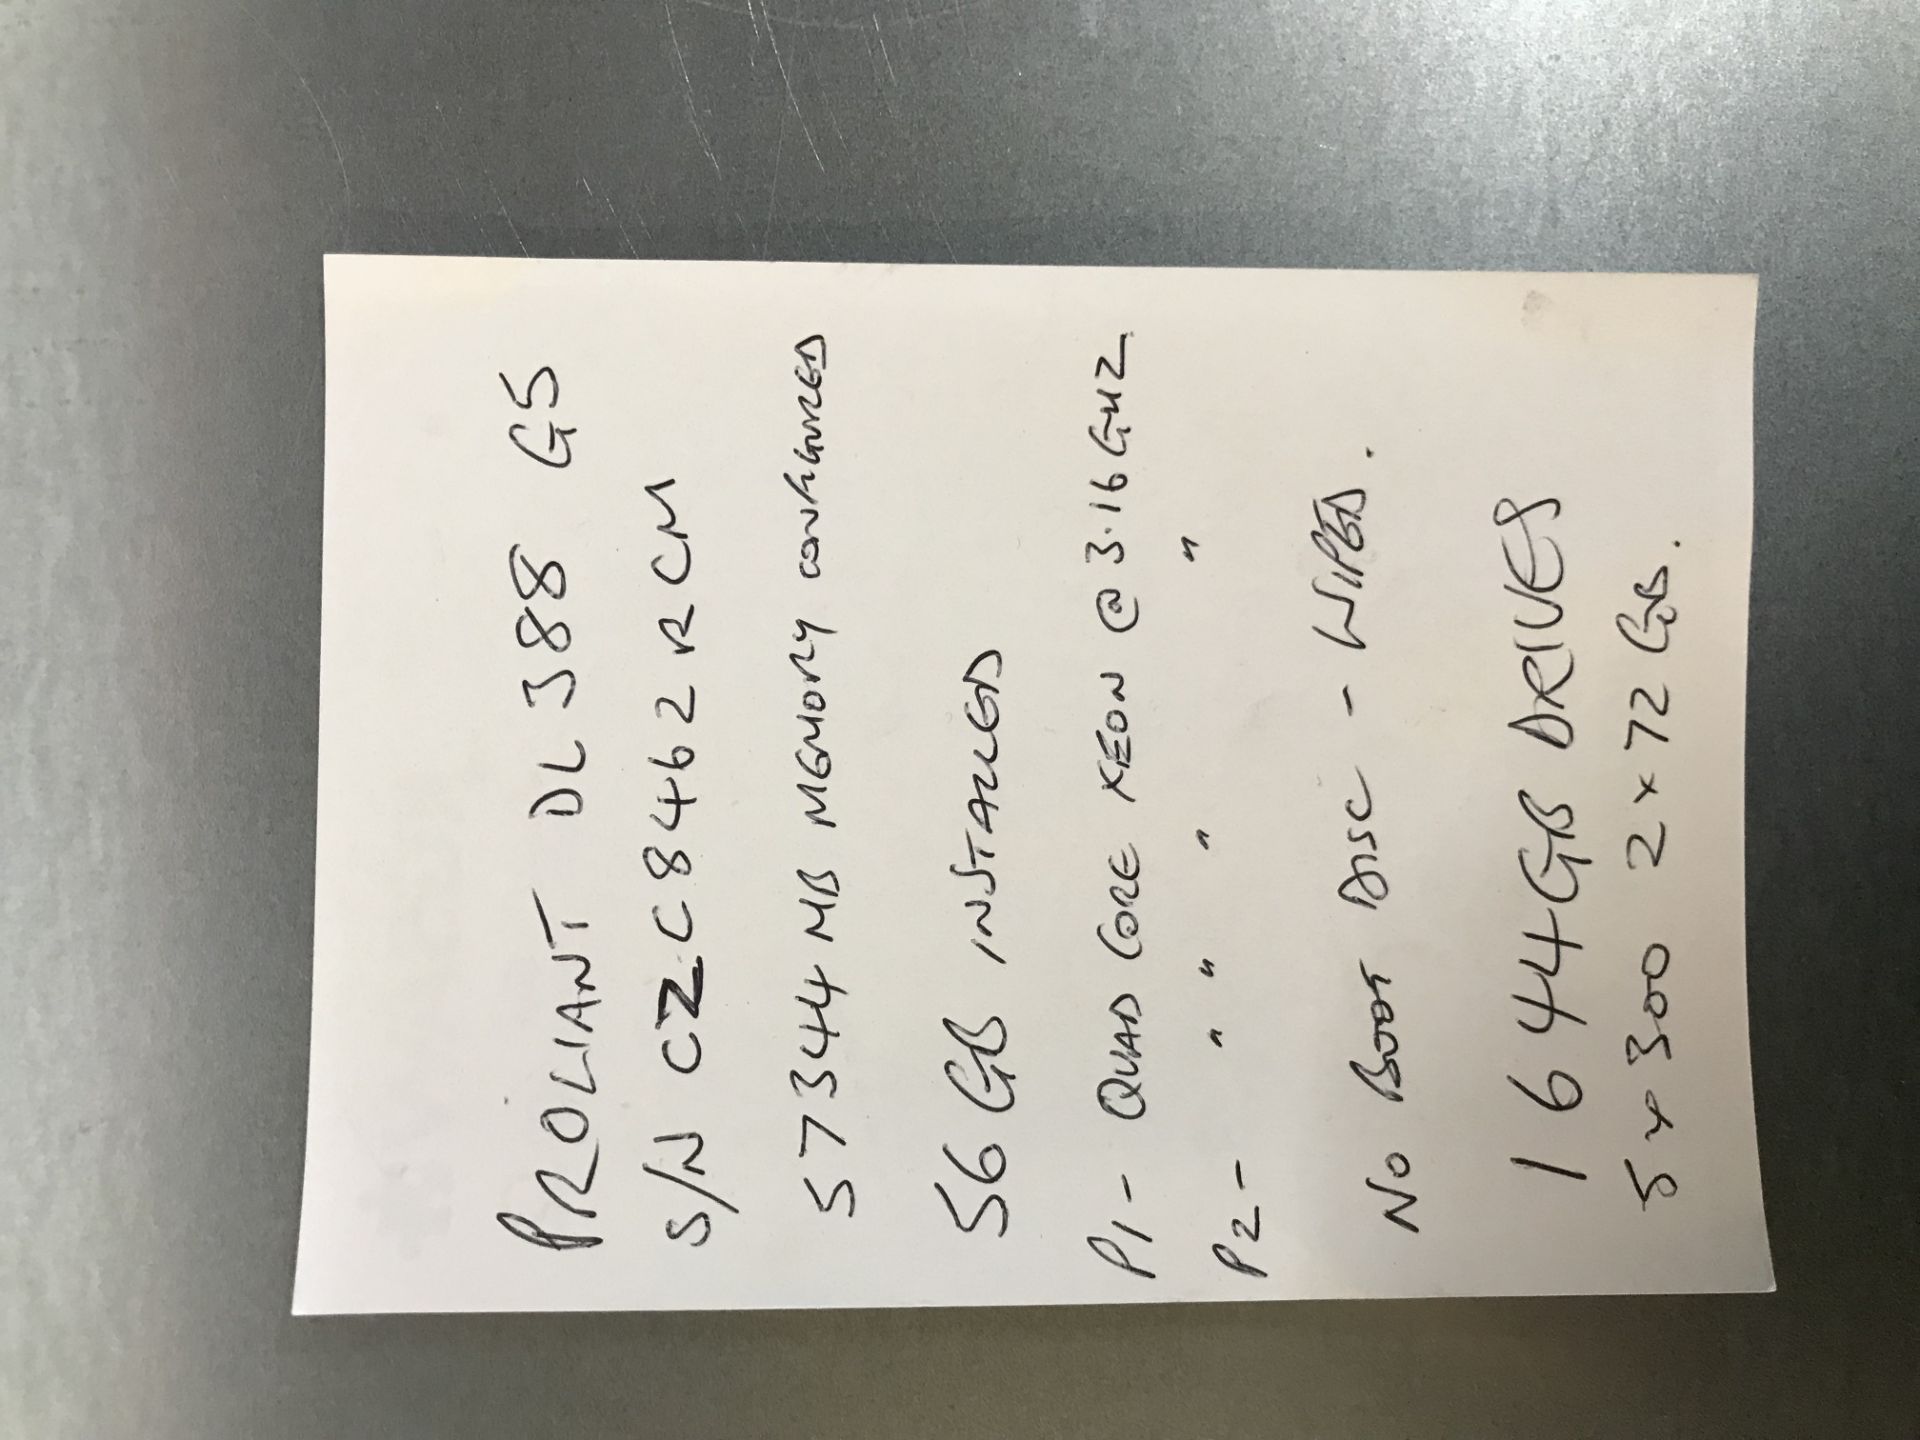 PROLIANT DL 388 G5
S/N CZC8462RCM
57344 MB MEMORY CONFIGURED
56 GB INSTALLED
P1 - QUAD CORE XEON @ 3.16 GHZ
P2 - " " " "
NO BOOT DISC - WIPED.
1644GB DRIVES
5 x 300 2 x 72 GB.